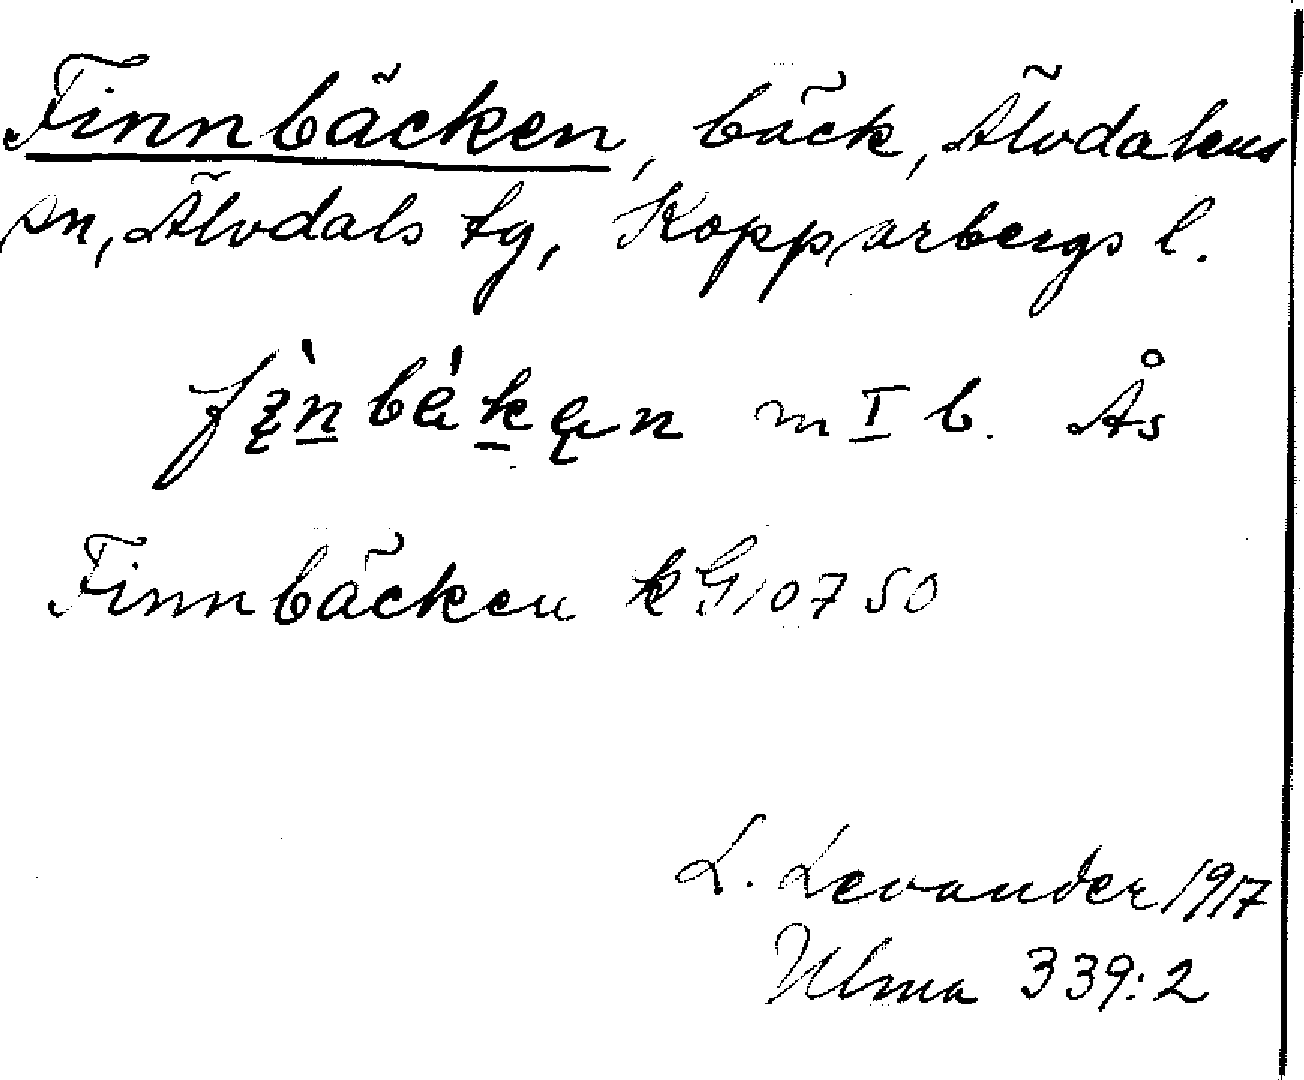 Finnbäcken, bäck, Älvdalens
sn, Älvdals tg, Kopparbergs l.
m I b. Ås
Finnbäcken kG10750
L. Levander 1917
Ulma 339:2